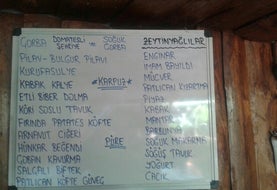 ÇORBA DOMATESLİ ŞEHRİYE ve SOĞUK ÇORBA
PİLAV - BULGUR PİLAVI
KURUFASULYE
KABAK KALYE
ETLİ BİBER DOLMA
KÖRİ SOSLU TAVUK
FIRINDA PATATES KÖFTE
ARNAVUT CİĞERİ
HÜNKAR BEĞENDİ
ÇOBAN KAVURMA
SALÇALI BİFTEK
PATLICAN KÖFTE GÜVEÇ
*KARPUZ*
PÜRE
ZEYTİNYAĞLILAR
ENGİNAR
İMAM BAYILDI
MÜCVER
PATLICAN KIZARTMA
PİYAZ
KABAK
MANTAR
BARBUNYA
SOĞUK MAKARNA
SÖĞÜŞ TAVUK
YOĞURT
CACIK